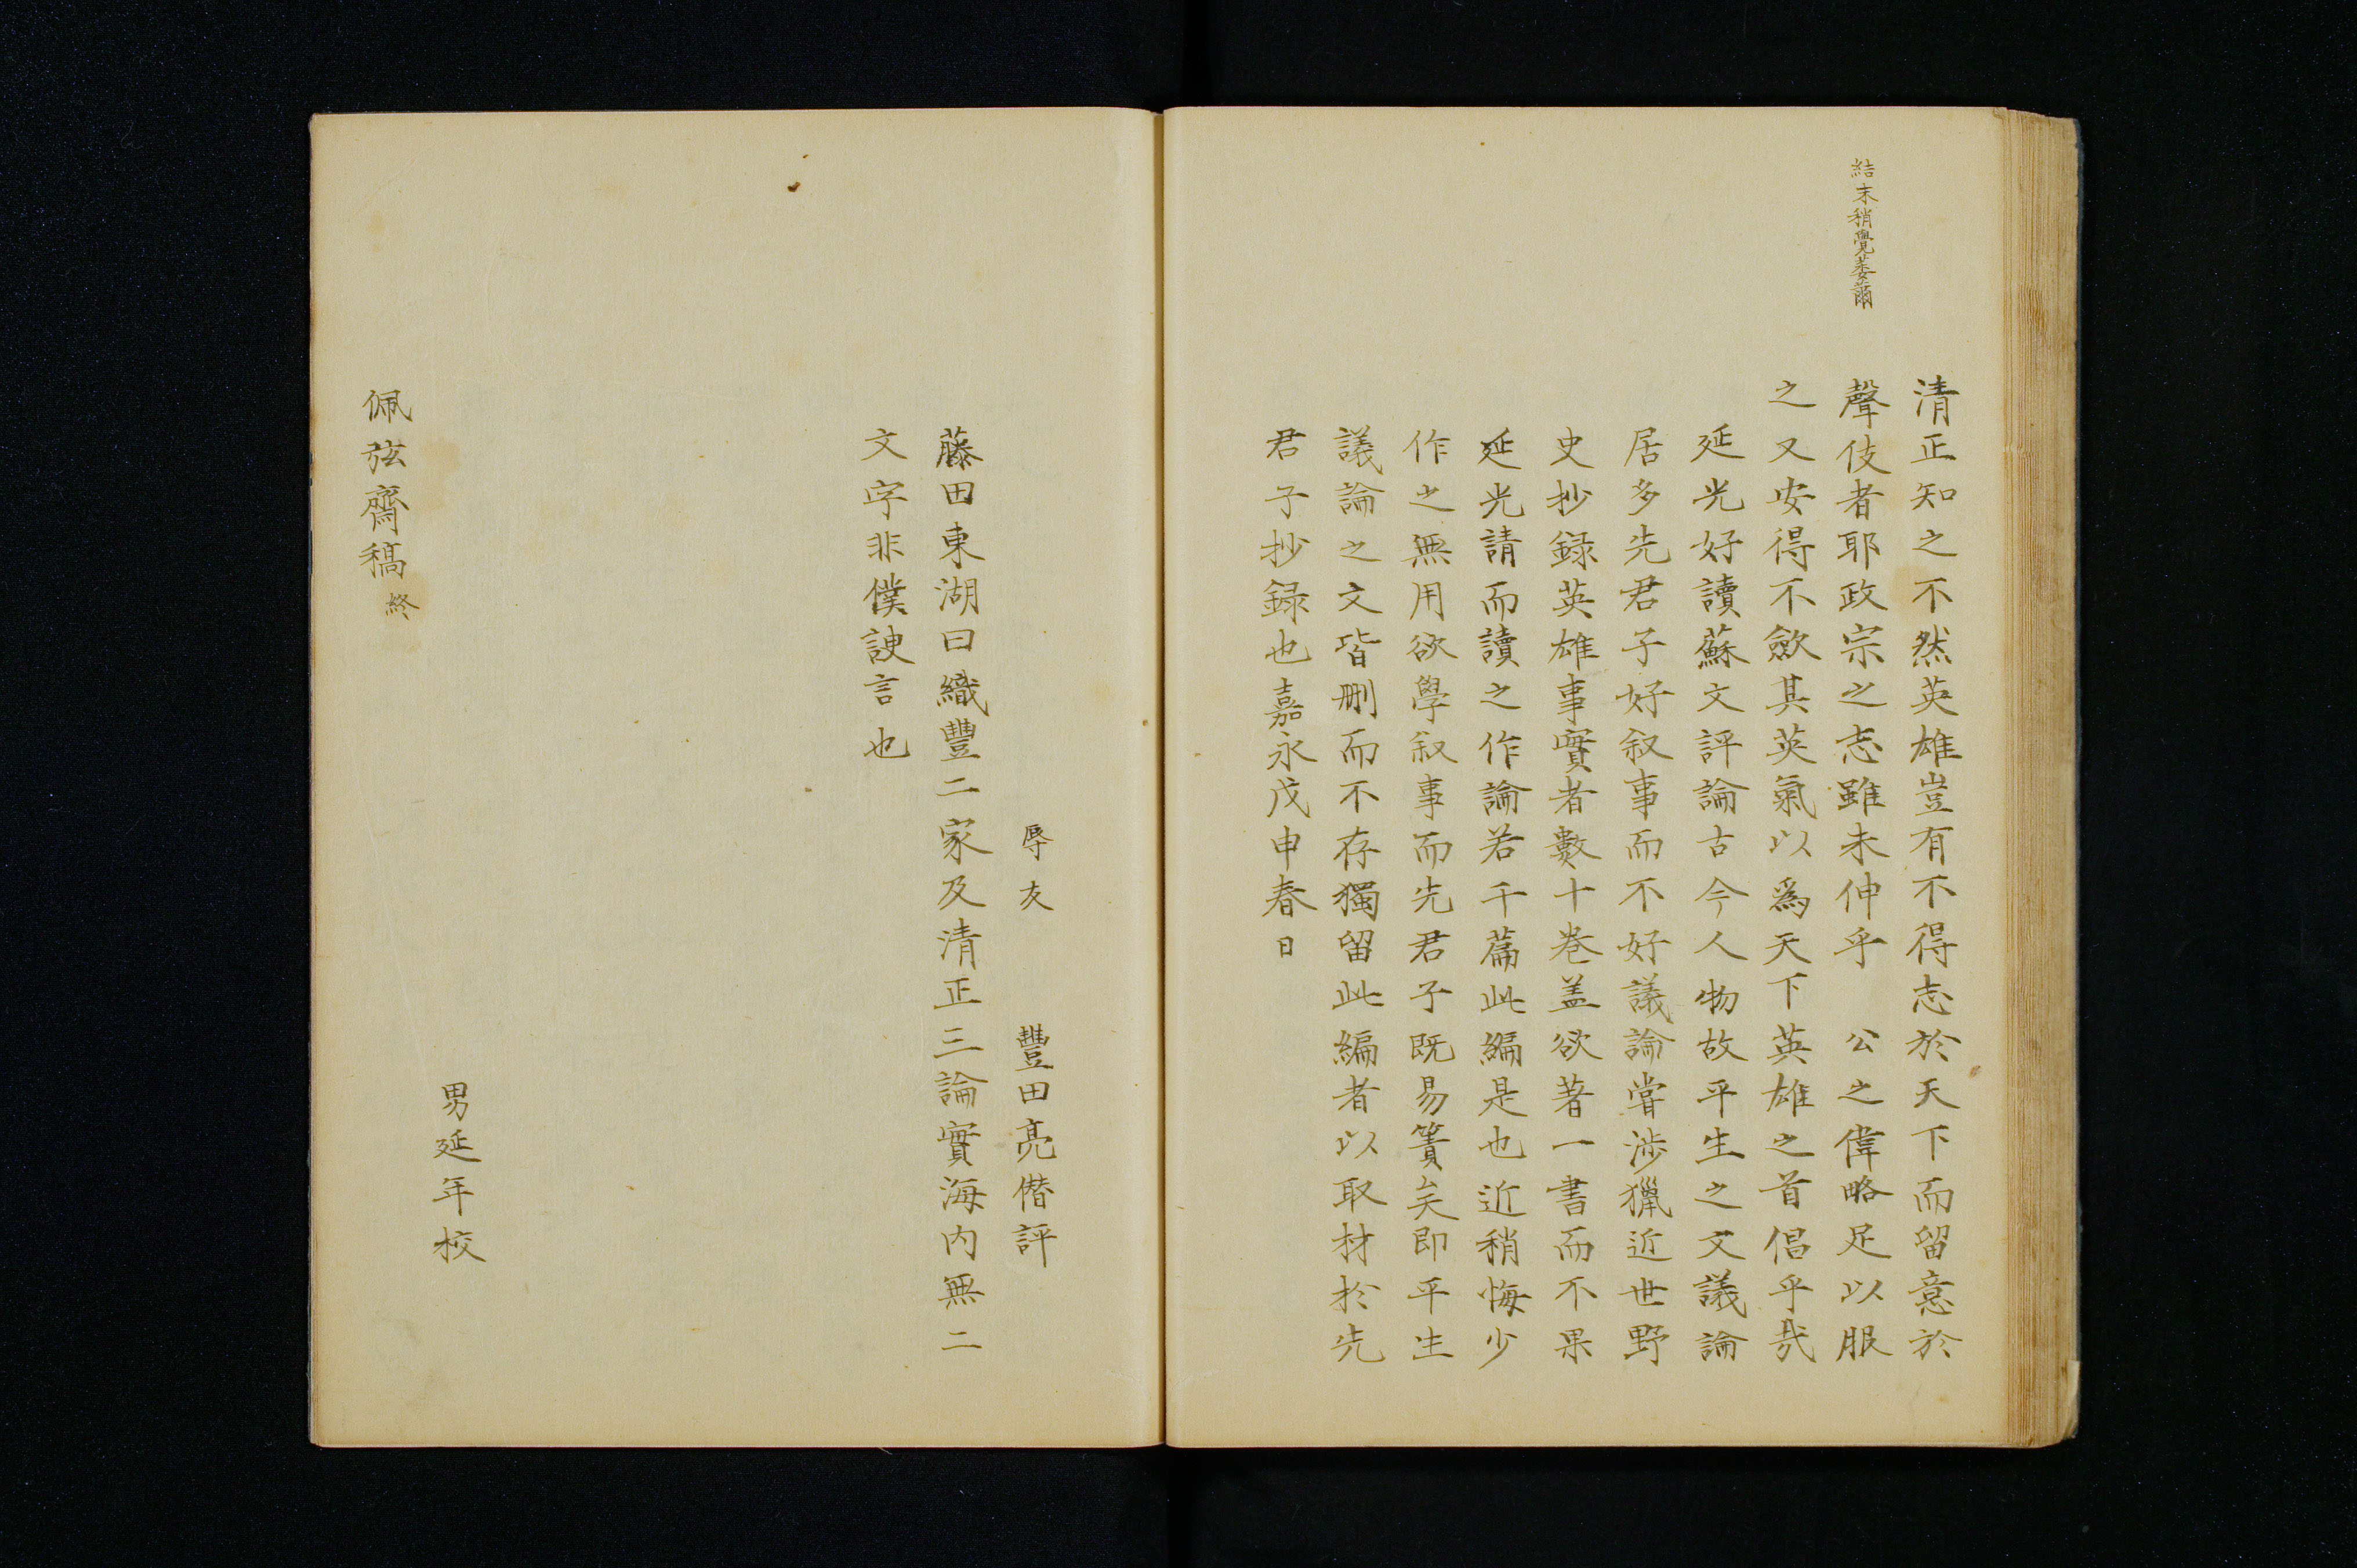 結末稍覺萎薾
清正知之不然英雄豈有不得志於天下而留意於
聲伎者耶政宗之志雖未伸乎　公之偉略足以服
之又安得不歛其英氣以爲天下英雄之首倡乎哉
延光好讀蘇文評論古今人物故平生之文議論
居多先君子好叙事而不好議論嘗渉獵近世野
史抄録英雄事實者數十巻盖欲著一書而不果
延光請而讀之作論若干篇此編是也近稍悔少
作之無用欲學叙事而先君子既易簀矣即平生
議論之文皆刪而不存獨留此編者以取材於先
君子抄録也嘉永戊申春日
辱友　豐田亮僣評
藤田東湖曰織豐二家及清正三論實海内無二
文字非僕諛言也
男延年校
佩弦齋稿終